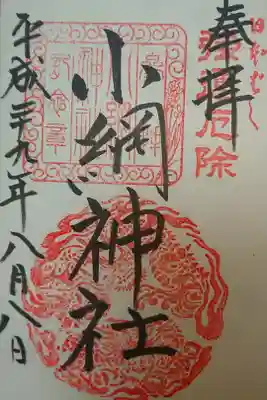 奉拝
強運厄除
小網神社
平成二十九年八月八日